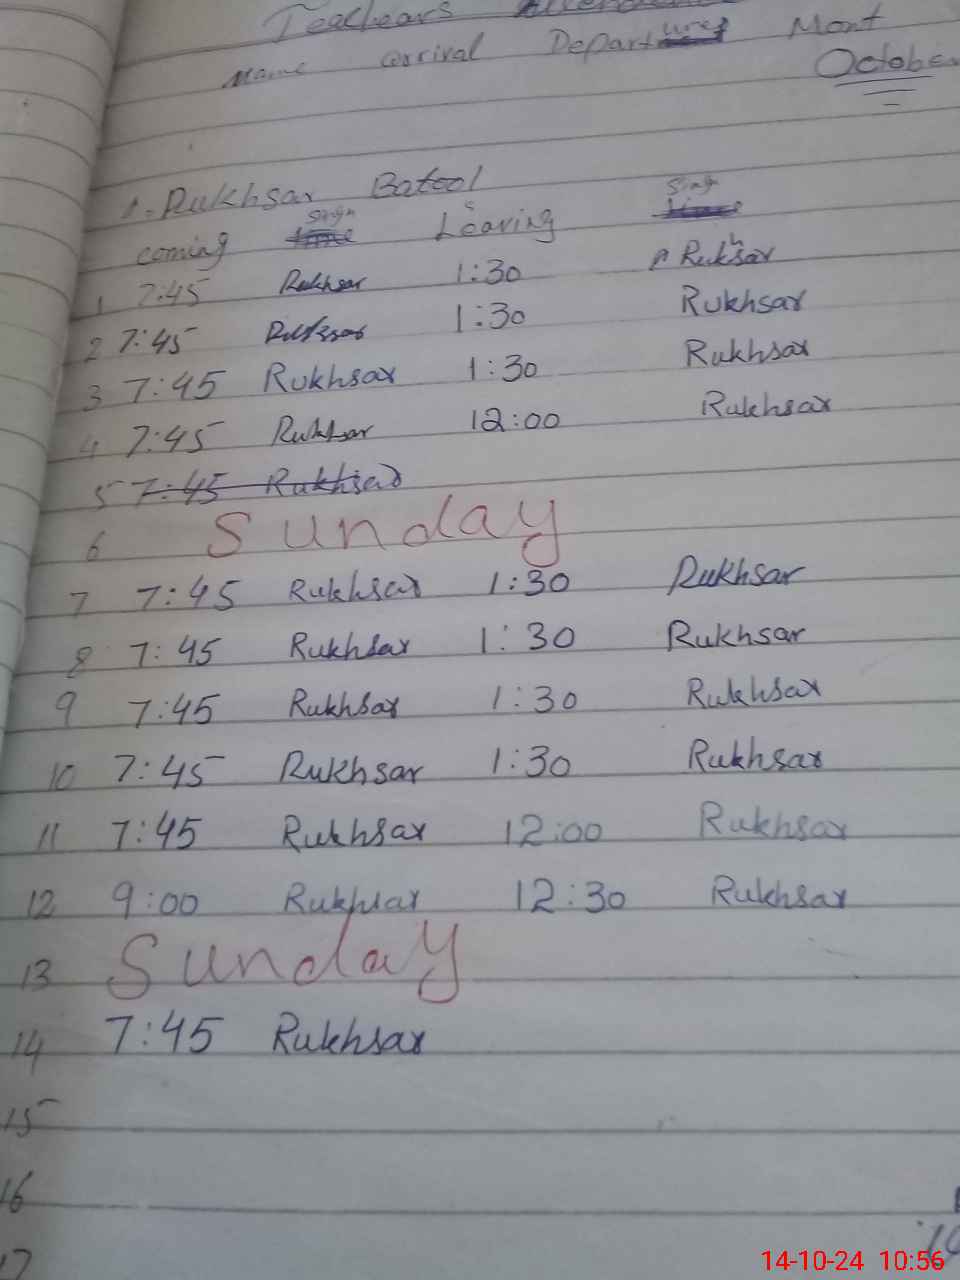 Teachears
Name arrival Departures Mont
October
1. Rukhsar Batool
coming Singn Leaving Singn
1 7:45 Rukhsar 1:30 Rukhsar
2 7:45 Rukhsar 1:30 Rukhsar
3 7:45 Rukhsar 1:30 Rukhsar
4 7:45 Rukhsar 12:00 Rukhsar
5 7:45 Rukhsar
6 Sunday
7 7:45 Rukhsar 1:30 Rukhsar
8 7:45 Rukhsar 1:30 Rukhsar
9 7:45 Rukhsar 1:30 Rukhsar
10 7:45 Rukhsar 1:30 Rukhsar
11 7:45 Rukhsar 12:00 Rukhsar
12 9:00 Rukhsar 12:30 Rukhsar
13 Sunday
14 7:45 Rukhsar
15
16
17
14-10-24 10:56